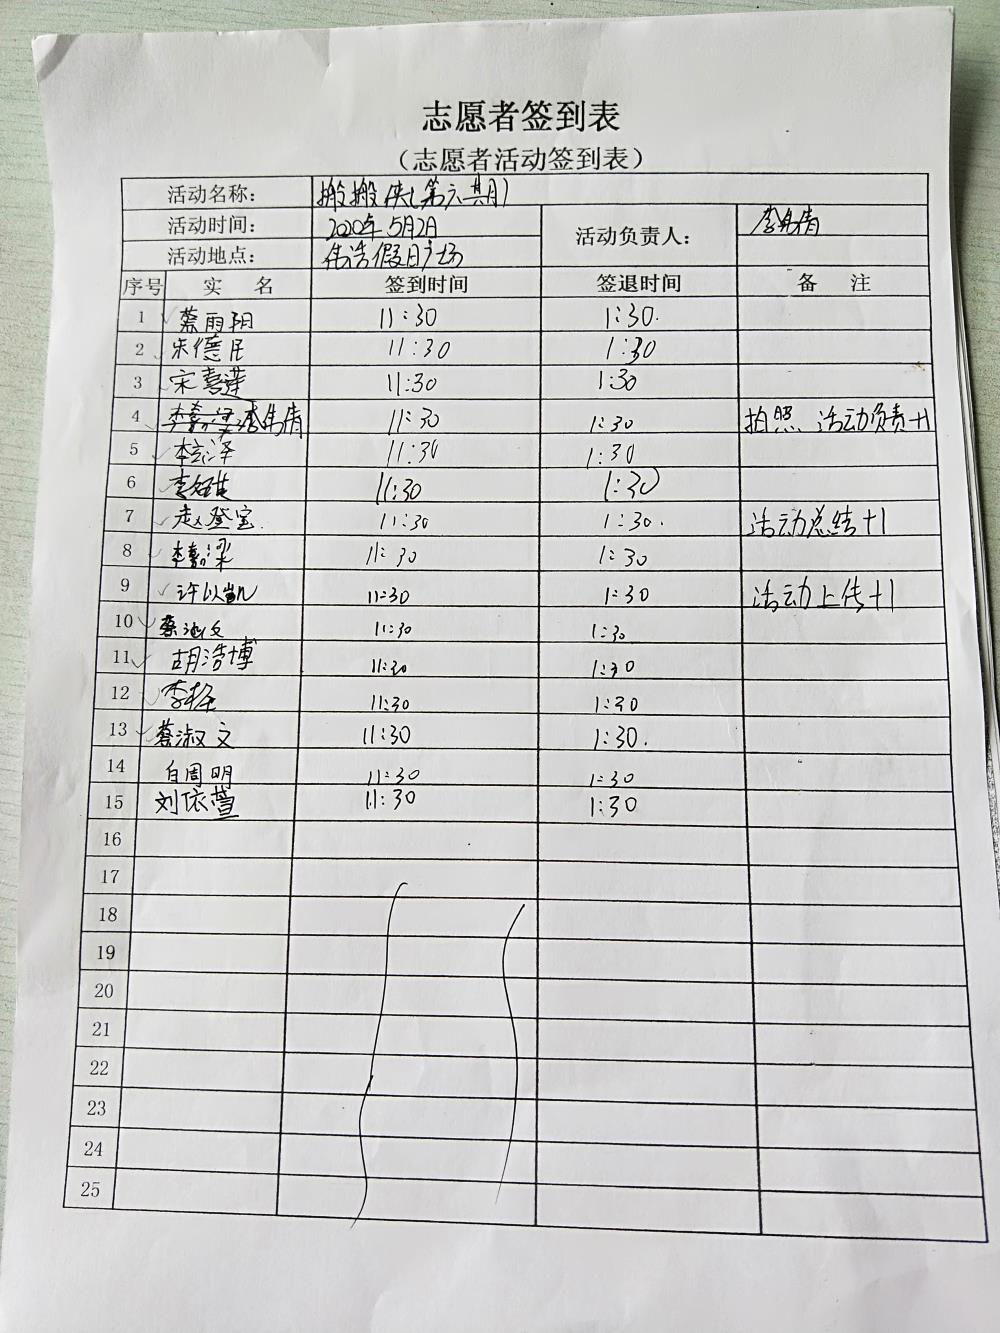 志愿者签到表
（志愿者活动签到表）
活动名称： 搬搬侠（第六期）
活动时间： 2020年5月2日 活动负责人： 李伟倩
活动地点： 伟浩假日广场
序号 实 名 签到时间 签退时间 备 注
1 蔡雨阳 11:30 1:30.
2 宋德民 11:30 1:30
3 宋喜莲 11:30 1:30
4 李伟倩 11:30 1:30 拍照、活动负责+1
5 11:30 1:30
6 11:30 1:30
7 赵登宝. 11:30 1:30. 活动总结+1
8 李嘉梁 11:30 1:30
9 许以凯 11:30 1:30 活动上传+1
10 蔡淑文 11:30 1:30
11 胡浩博 11:30 1:30
12 11:30 1:30
13 蔡淑文 11:30 1:30.
14 白周明 11:30 1:30
15 刘依萱 11:30 1:30
16
17
18
19
20
21
22
23
24
25